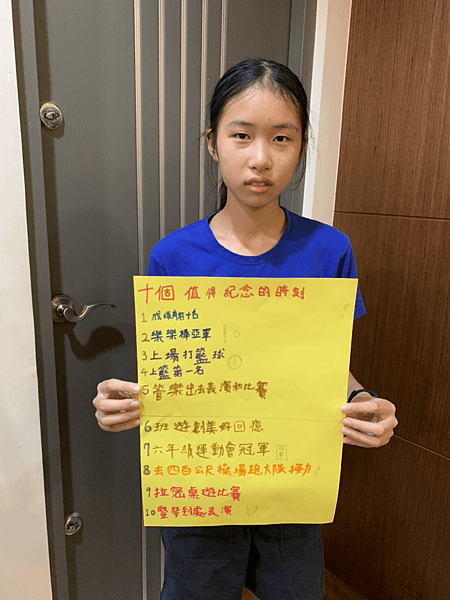 十個 值得紀念的時刻
1 前十名
2 樂樂棒亞軍
3 上場打籃球
4 上籃第一名
5 管樂出去表演和比賽
6 班遊創美好回憶
7 六年級運動會冠軍
8 去四百公尺操場跑大隊接力!
9 拉密桌遊比賽
10 豎琴到處表演